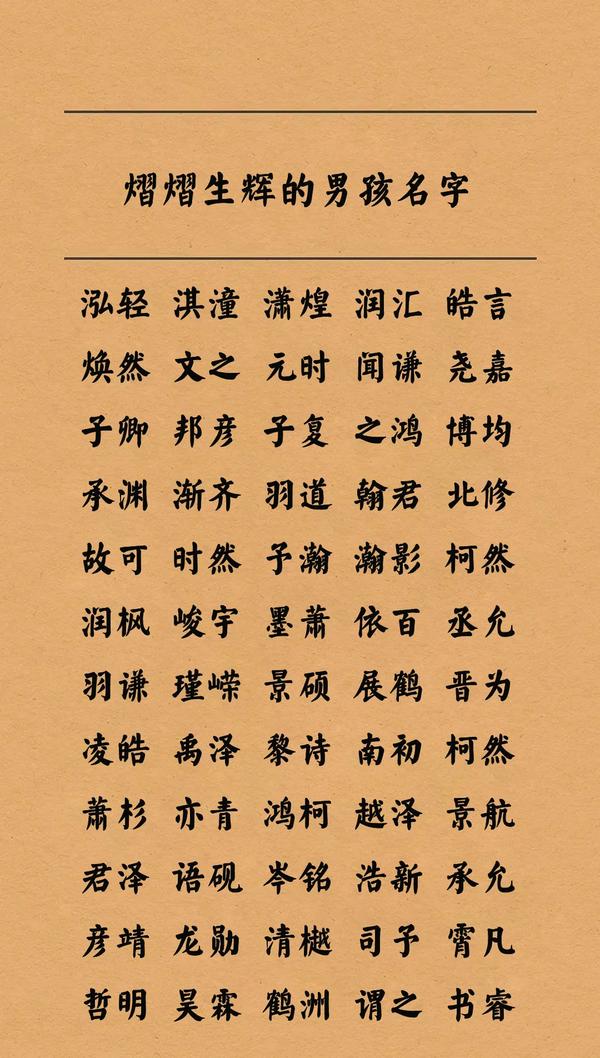 熠熠生辉的男孩名字
泓轻 淇潼 潇煌 润汇 皓言
焕然 文之 元时 闻谦 尧嘉
子卿 邦彦 子复 之鸿 博均
承渊 渐齐 羽道 翰君 北修
故可 时然 予瀚 瀚影 柯然
润枫 峻宇 墨萧 依百 丞允
羽谦 瑾嵘 景硕 展鹤 晋为
凌皓 禹泽 黎诗 南初 柯然
萧杉 亦青 鸿柯 越泽 景航
君泽 语砚 岑铭 浩新 承允
彦靖 龙勋 清樾 司予 霄凡
哲明 昊霖 鹤洲 谓之 书睿